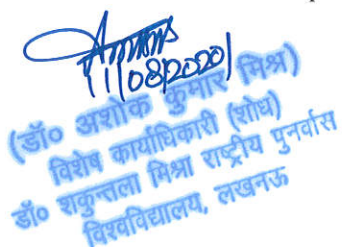 11/08/2020
(डॉ० अशोक कुमार मिश्र)
विशेष कार्याधिकारी (शोध)
डॉ० शकुन्तला मिश्रा राष्ट्रीय पुनर्वास
विश्वविद्यालय, लखनऊ